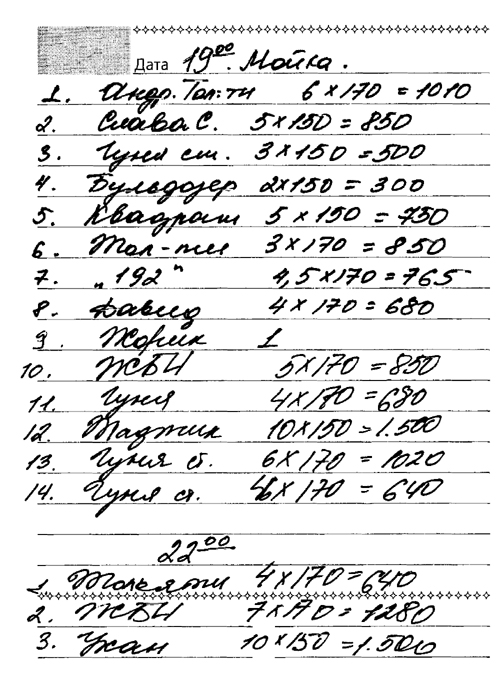 Дата 19⁰⁰. Мойка.
1. Андр. Тол-ти 6×170 = 1010
2. Слава С. 5×150 = 850
3. Гуня ст. 3×150 = 500
4. Бульдозер 2×150 = 300
5. Квадрат 5×150 = 750
6. Тол-ти 3×170 = 850
7. „192" 4,5×170 = 765
8. Давид 4×170 = 680
9. Жорик 1
10. ЖБИ 5×170 = 850
11. Гуня 4×170 = 680
12. Таджик 10×150 = 1.500
13. Гуня ст. 6×170 = 1020
14. Гуня ст. 4×170 = 640
22⁰⁰
1. Тольяти 4×170 = 640
2. ЖБИ 7×170 = 1280
3. Укан 10×150 = 1.500